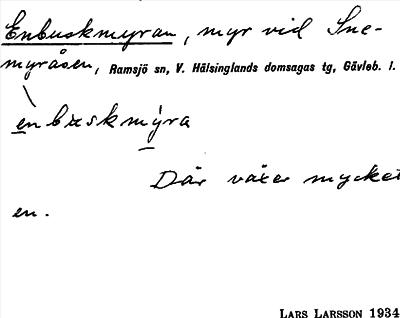 Enbuskmyran, myr vid Sne-
myråsen, Ramsjö sn, V. Hälsinglands domsagas tg, Gävleb. l.
enbuskmýra
Där växer mycket
en.
LARS LARSSON 1934